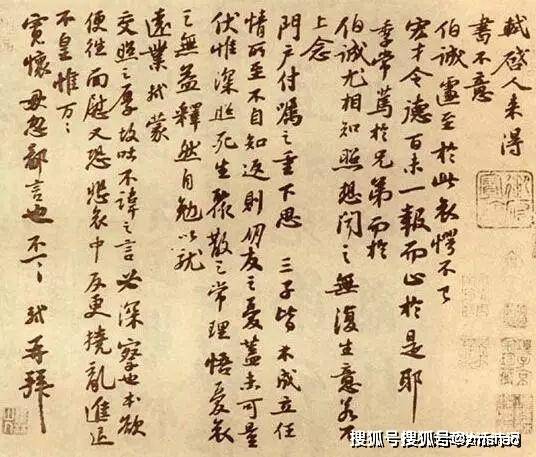 軾啓人来得
書不意
伯誠遽至於此哀愕不已
宏才令德百未一報而止於是耶
季常篤於兄弟而於
伯誠尤相知照想聞之無復生意若不
上念
門户付囑之重下思三子皆未成立任
情所至不自知返則朋友之憂蓋未可量
伏惟深照死生聚散之常理悟憂哀
之無益釋然自勉以就
遠業軾蒙
交照之厚故吐不諱之言必深察也本欲
便往面慰又恐悲哀中反更撓亂進退
不皇惟万万
寛懷毋忽鄙言也不一一軾再拜
搜狐号搜狐号